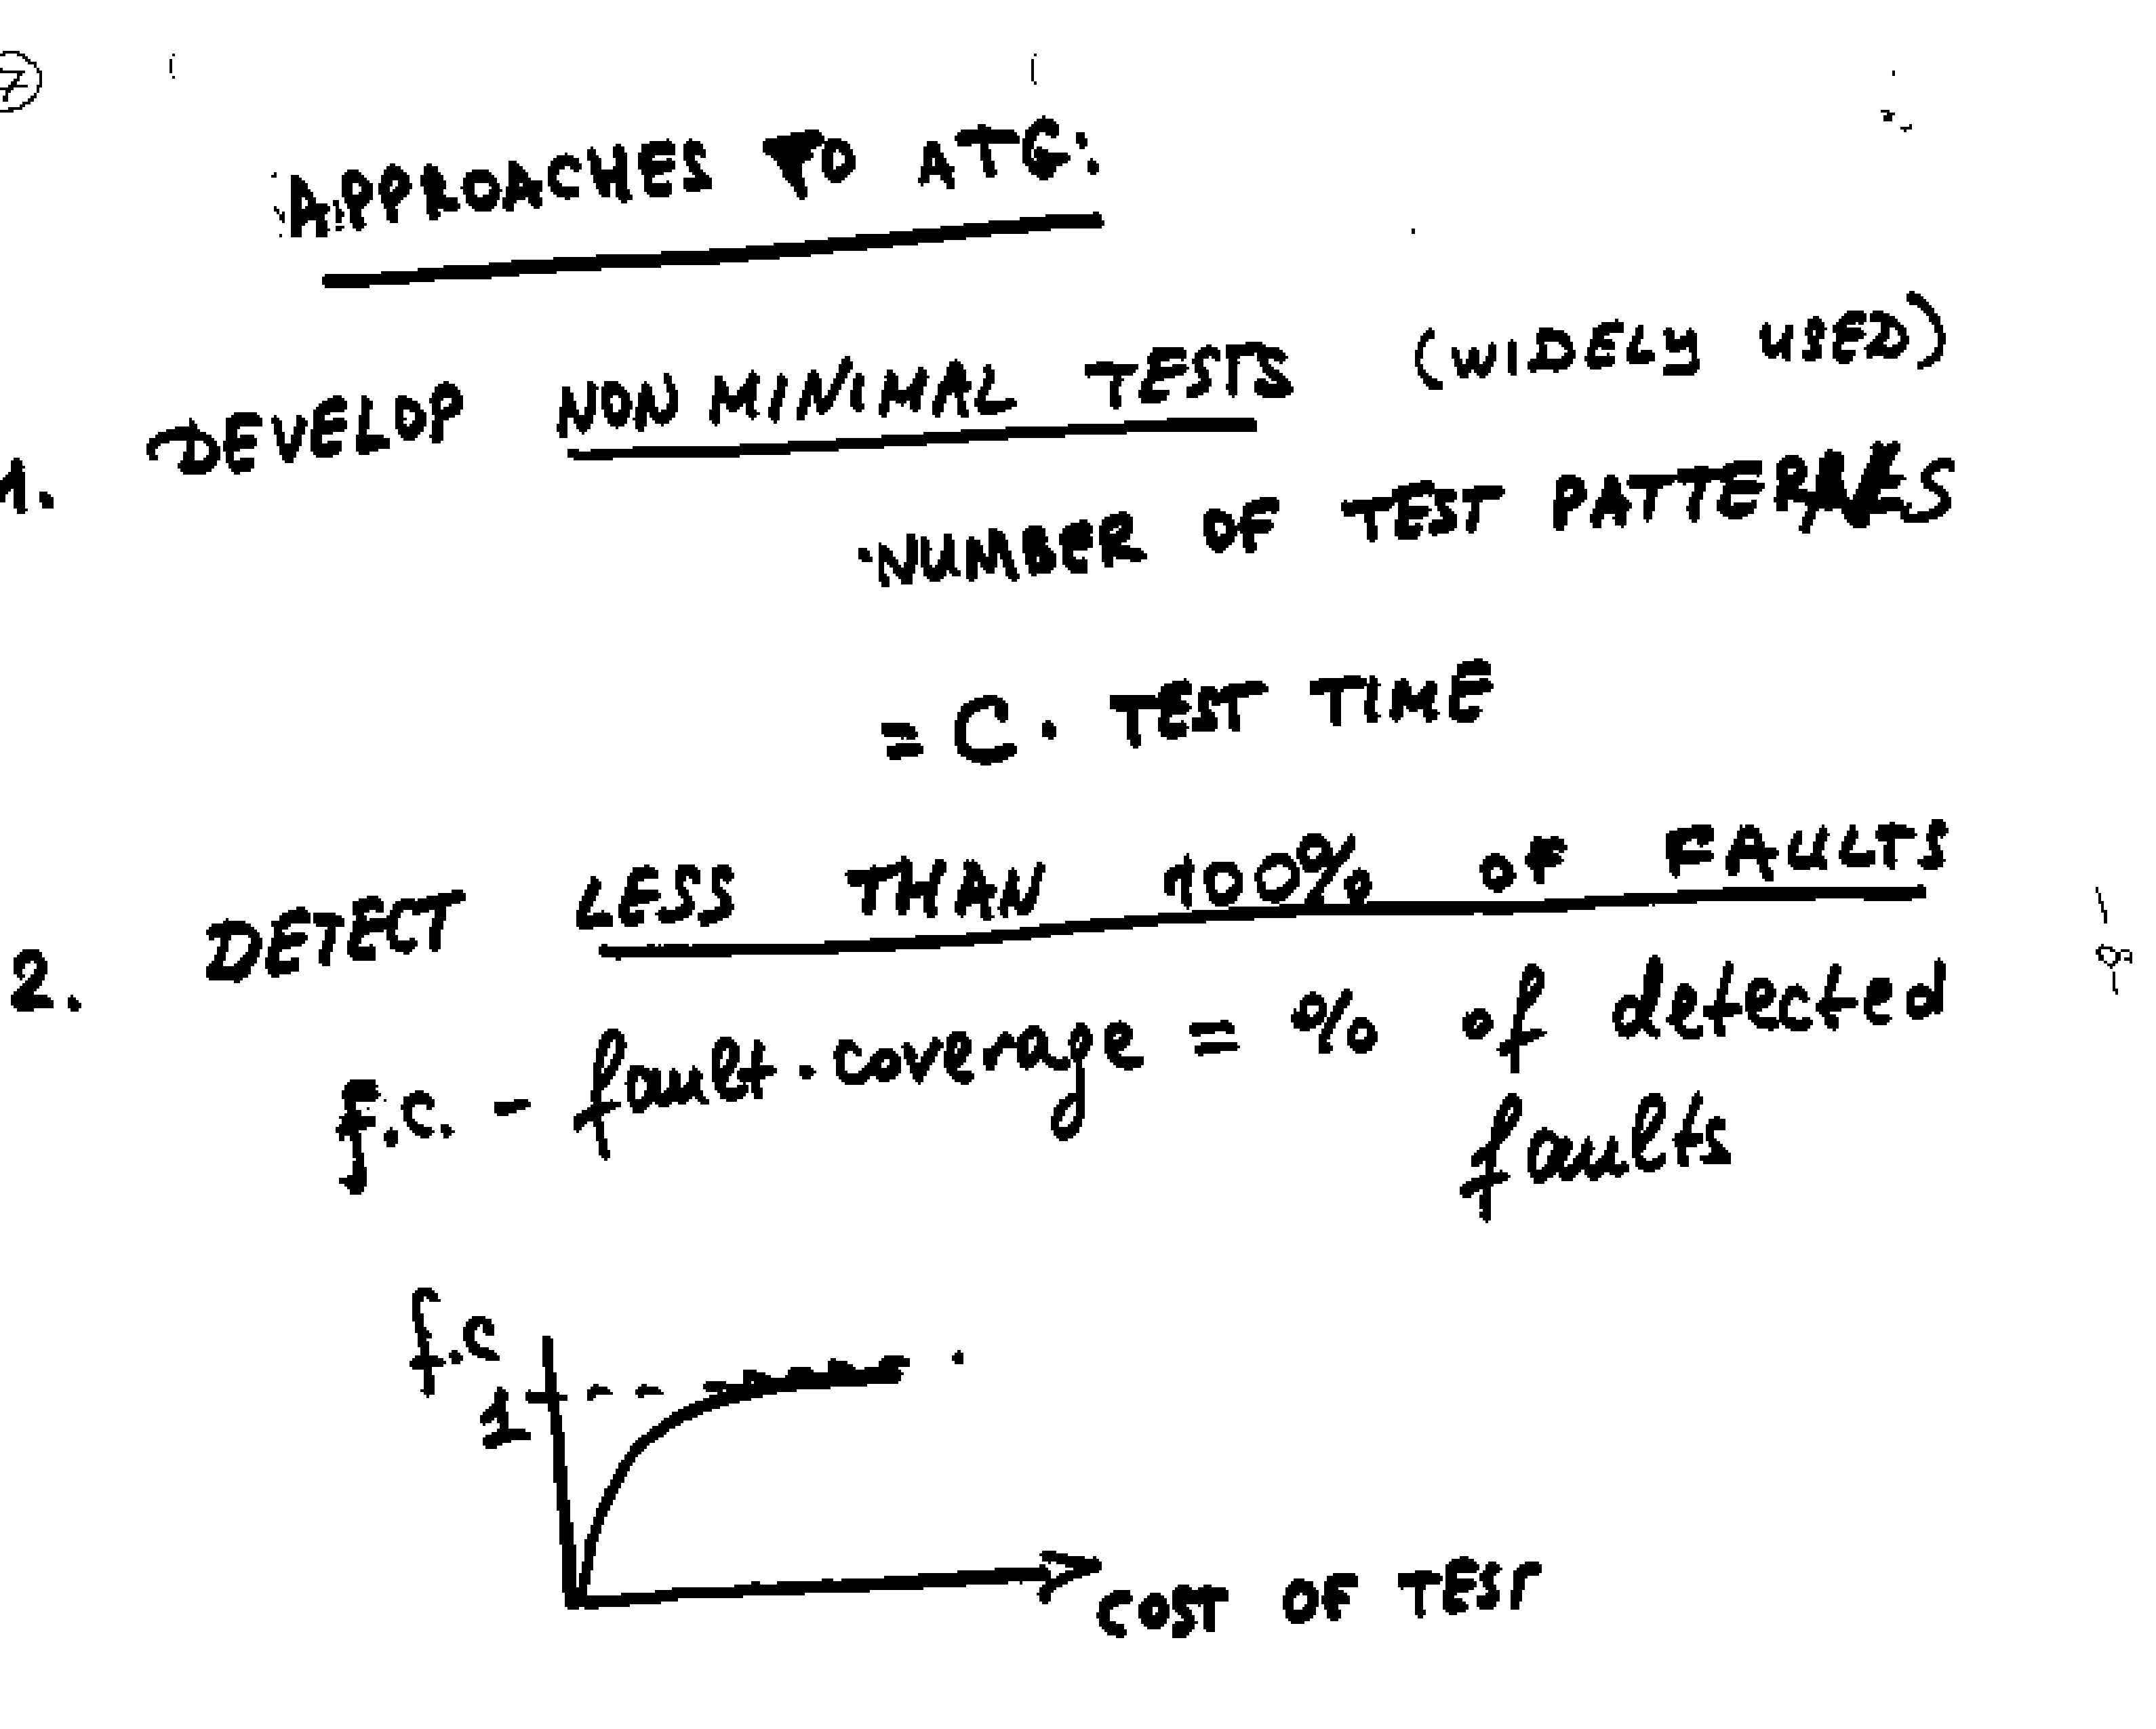 7
APPROACHES TO ATG:
1. DEVELOP NON MINIMAL TESTS (WIDELY USED)
NUMBER OF TEST PATTERNS
= C · TEST TIME
2. DETECT LESS THAN 100% OF FAULTS
f.c. - fault coverage = % of detected
faults
f.c
1
COST OF TEST